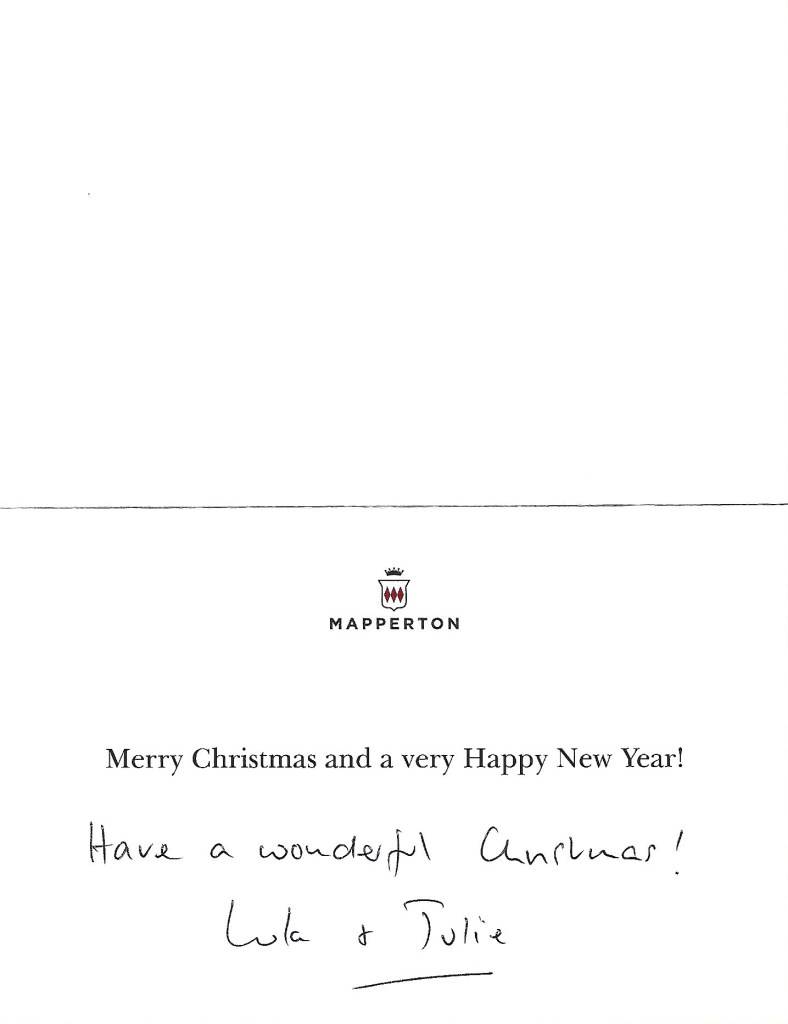 MAPPERTON
Merry Christmas and a very Happy New Year!
Have a wonderful Christmas!
& Julie